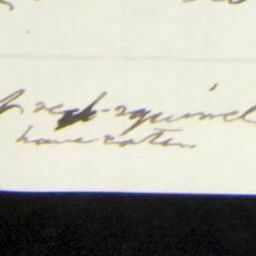 red-squirrel
have eaten